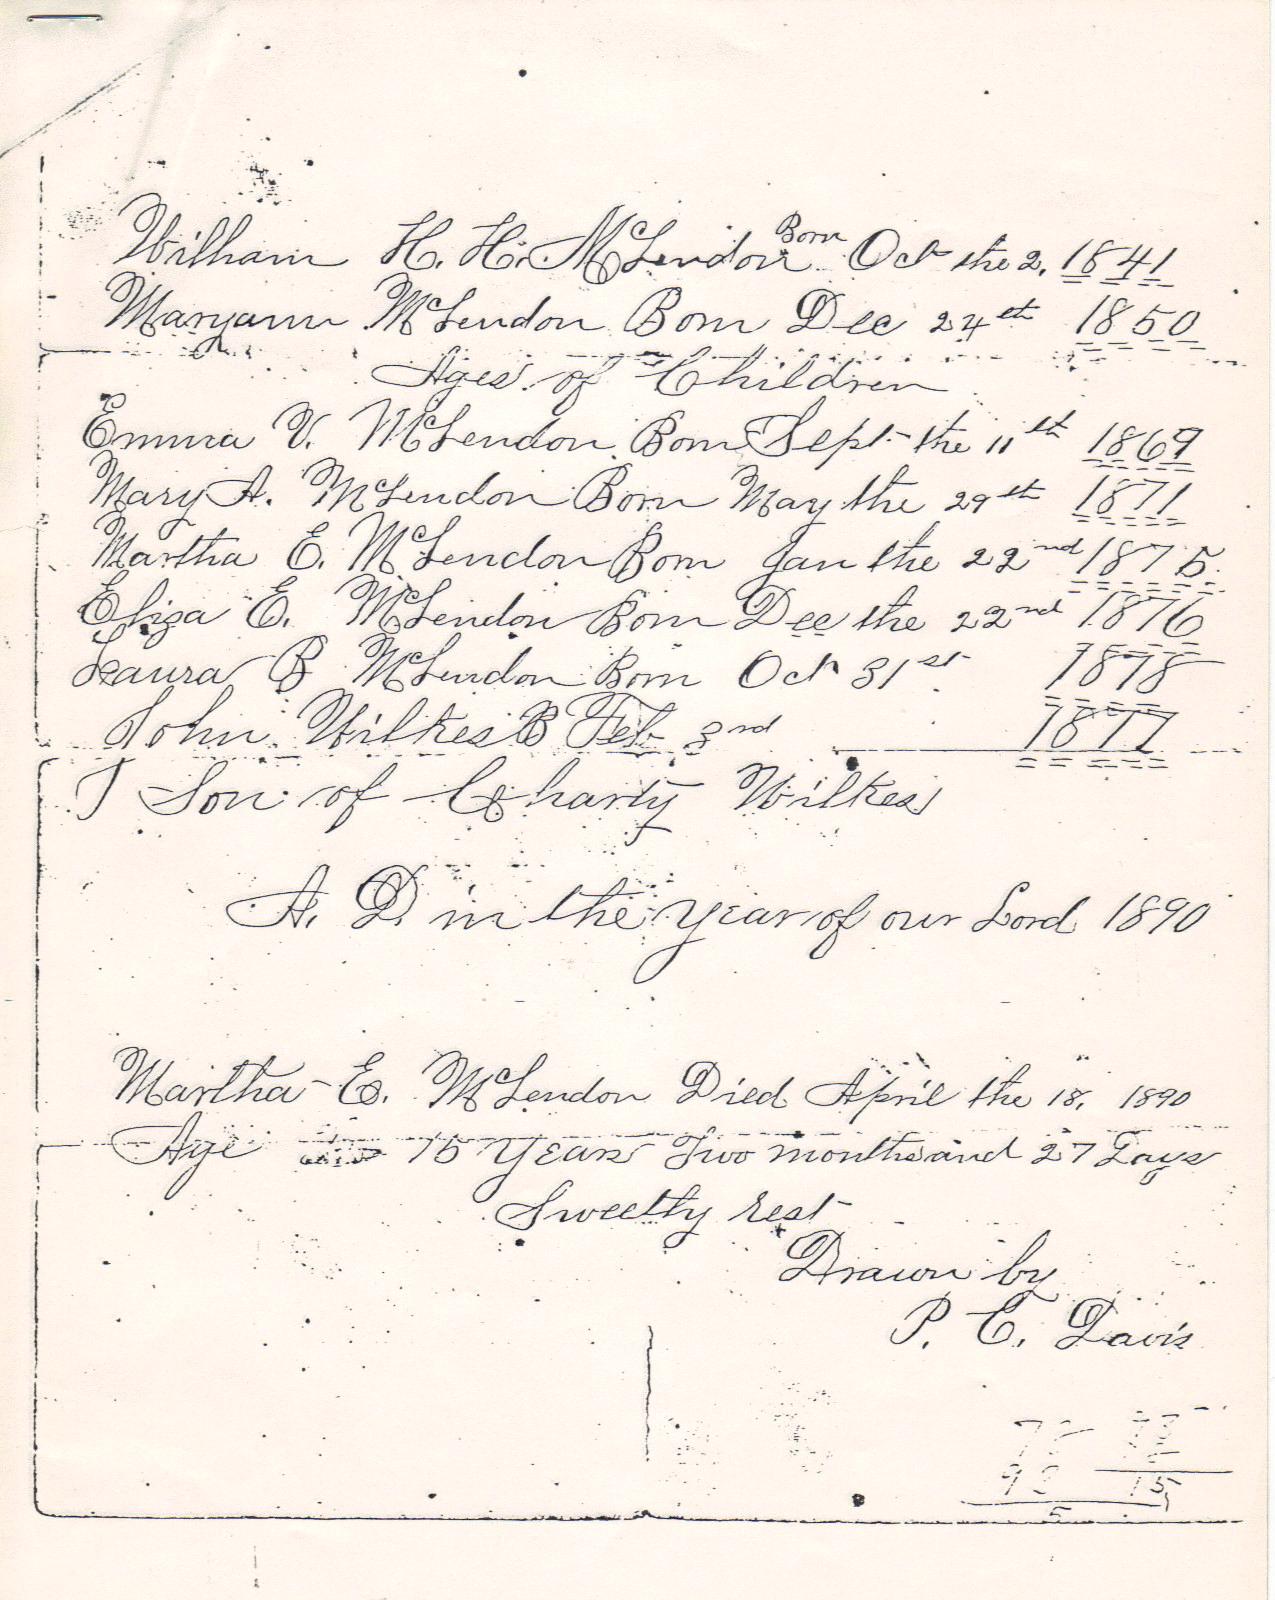 William H. H. McLendon Born Oct the 2. 1841
Maryann McLendon Born Dec 24th 1850
Ages of Children
Emma V. McLendon Born Sept the 11th 1869
Mary A. McLendon Born May the 29th 1871
Martha E. McLendon Born Jan the 22nd 1875.
Eliza E. McLendon Born Dec the 22nd 1876
Laura B McLendon Born Oct 31st 1878
John Wilkes B Feb 3rd 1877
Son of Charty Wilkes
A. D. in the year of our Lord 1890
Martha E. McLendon Died April the 18, 1890
Age 15 Years Two months and 27 Days
Sweetly rest
Drawn by
P. C. Davis
15
5